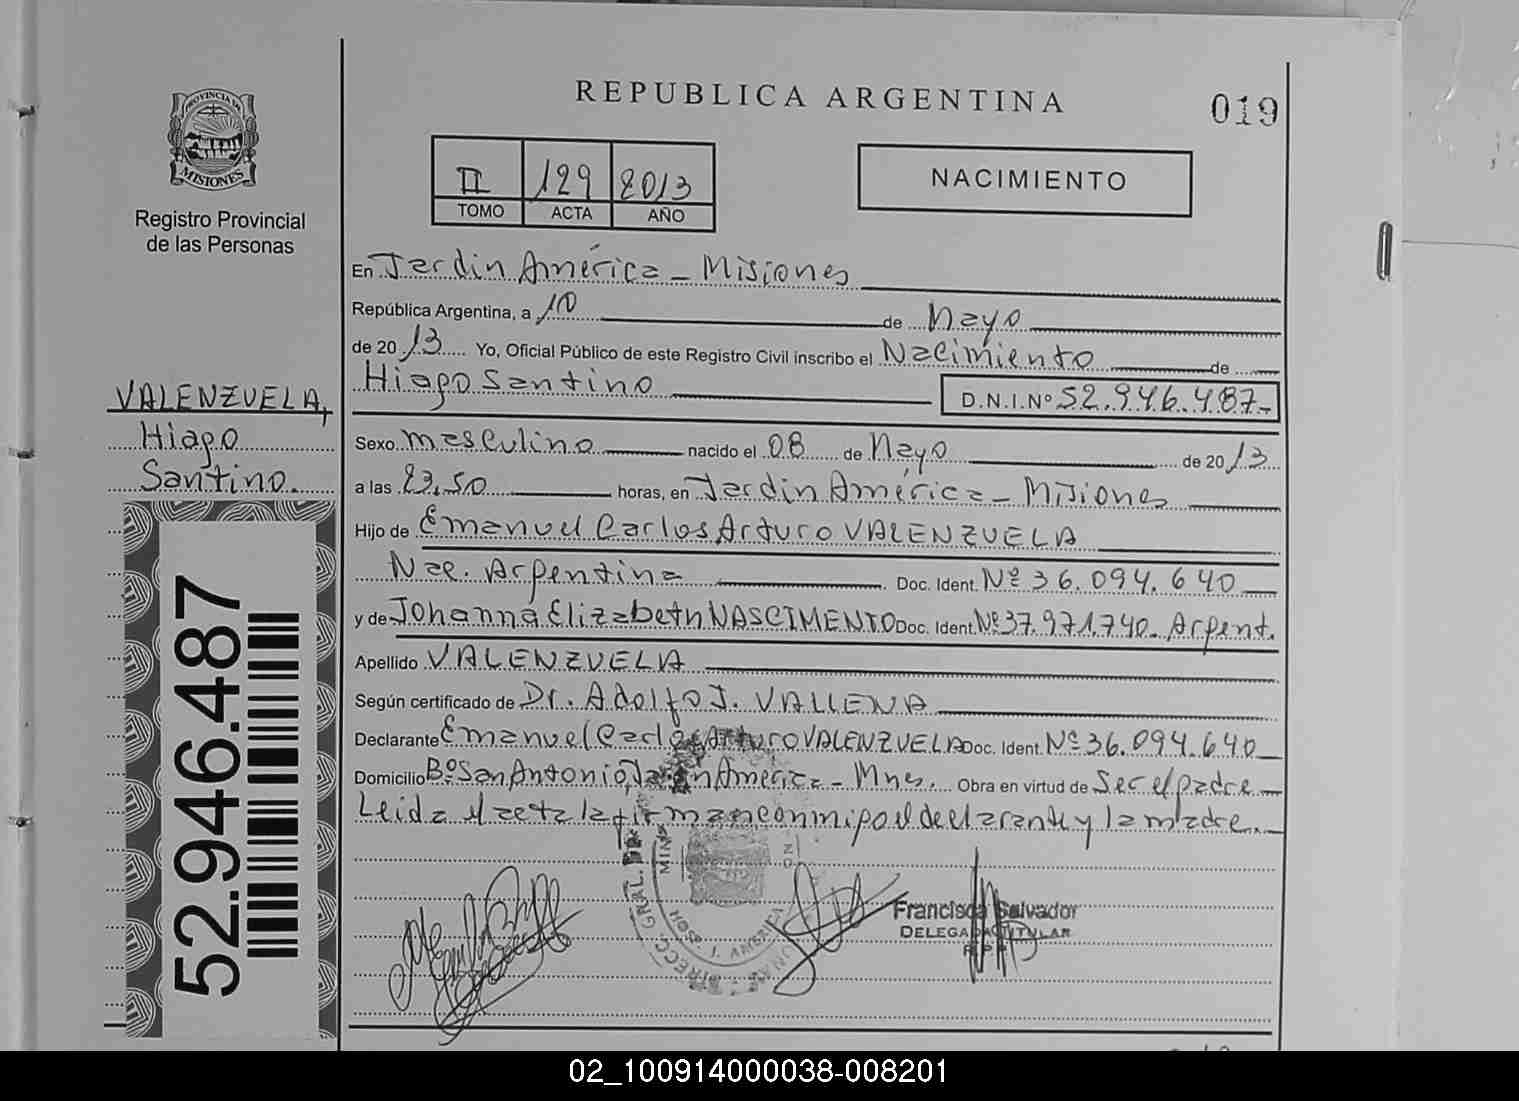 REPUBLICA ARGENTINA
019
PROVINCIA DE
MISIONES
Registro Provincial
de las Personas
II 129 2013
TOMO ACTA AÑO
NACIMIENTO
En Jardin América - Misiones
República Argentina, a 10 de Mayo
de 2013 Yo, Oficial Público de este Registro Civil inscribo el Nacimiento de
Hiago Santino D.N.I.Nº 52.946.487-
VALENZUELA,
Hiago
Santino.
Sexo masculino nacido el 08 de Mayo de 2013
a las 23,50 horas, en Jardin América - Misiones
Hijo de Emanuel Carlos Arturo VALENZUELA
Nac. Argentina Doc. Ident. Nº 36.094.640
y de Johanna Elizabeth NASCIMENTO Doc. Ident. Nº 37.971.740- Argent.
Apellido VALENZUELA
Según certificado de Dr. Adolfo J. VALLENA
Declarante Emanuel Carlos Arturo VALENZUELA Doc. Ident. Nº 36.094.640
Domicilio Bº San Antonio, Jardin America - Mnes. Obra en virtud de Ser el padre
Leida el acta la firman conmigo el declarante y la madre.
52.946.487
DIRECC. GRAL. DE
HOSP. J. AMERICA
Francisca Salvador
DELEGADA TITULAR
R.P.P.
02_100914000038-008201